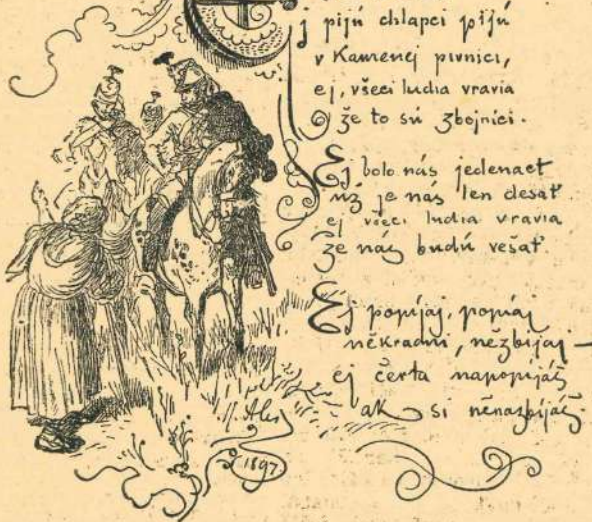 j pijú chlapci pijú
v Kamenej pivnici,
ej, všeci ludia vravia
že to sú zbojníci.
Ej bolo nás jedenact
už je nás len desať
ej všeci ludia vravia
že nás budú vešať
Ej popíjaj, popíjaj
někradni, nezbíjaj —
ej čerta napopíjáš
ak si něnazbíjáš.
M. Aleš
1897